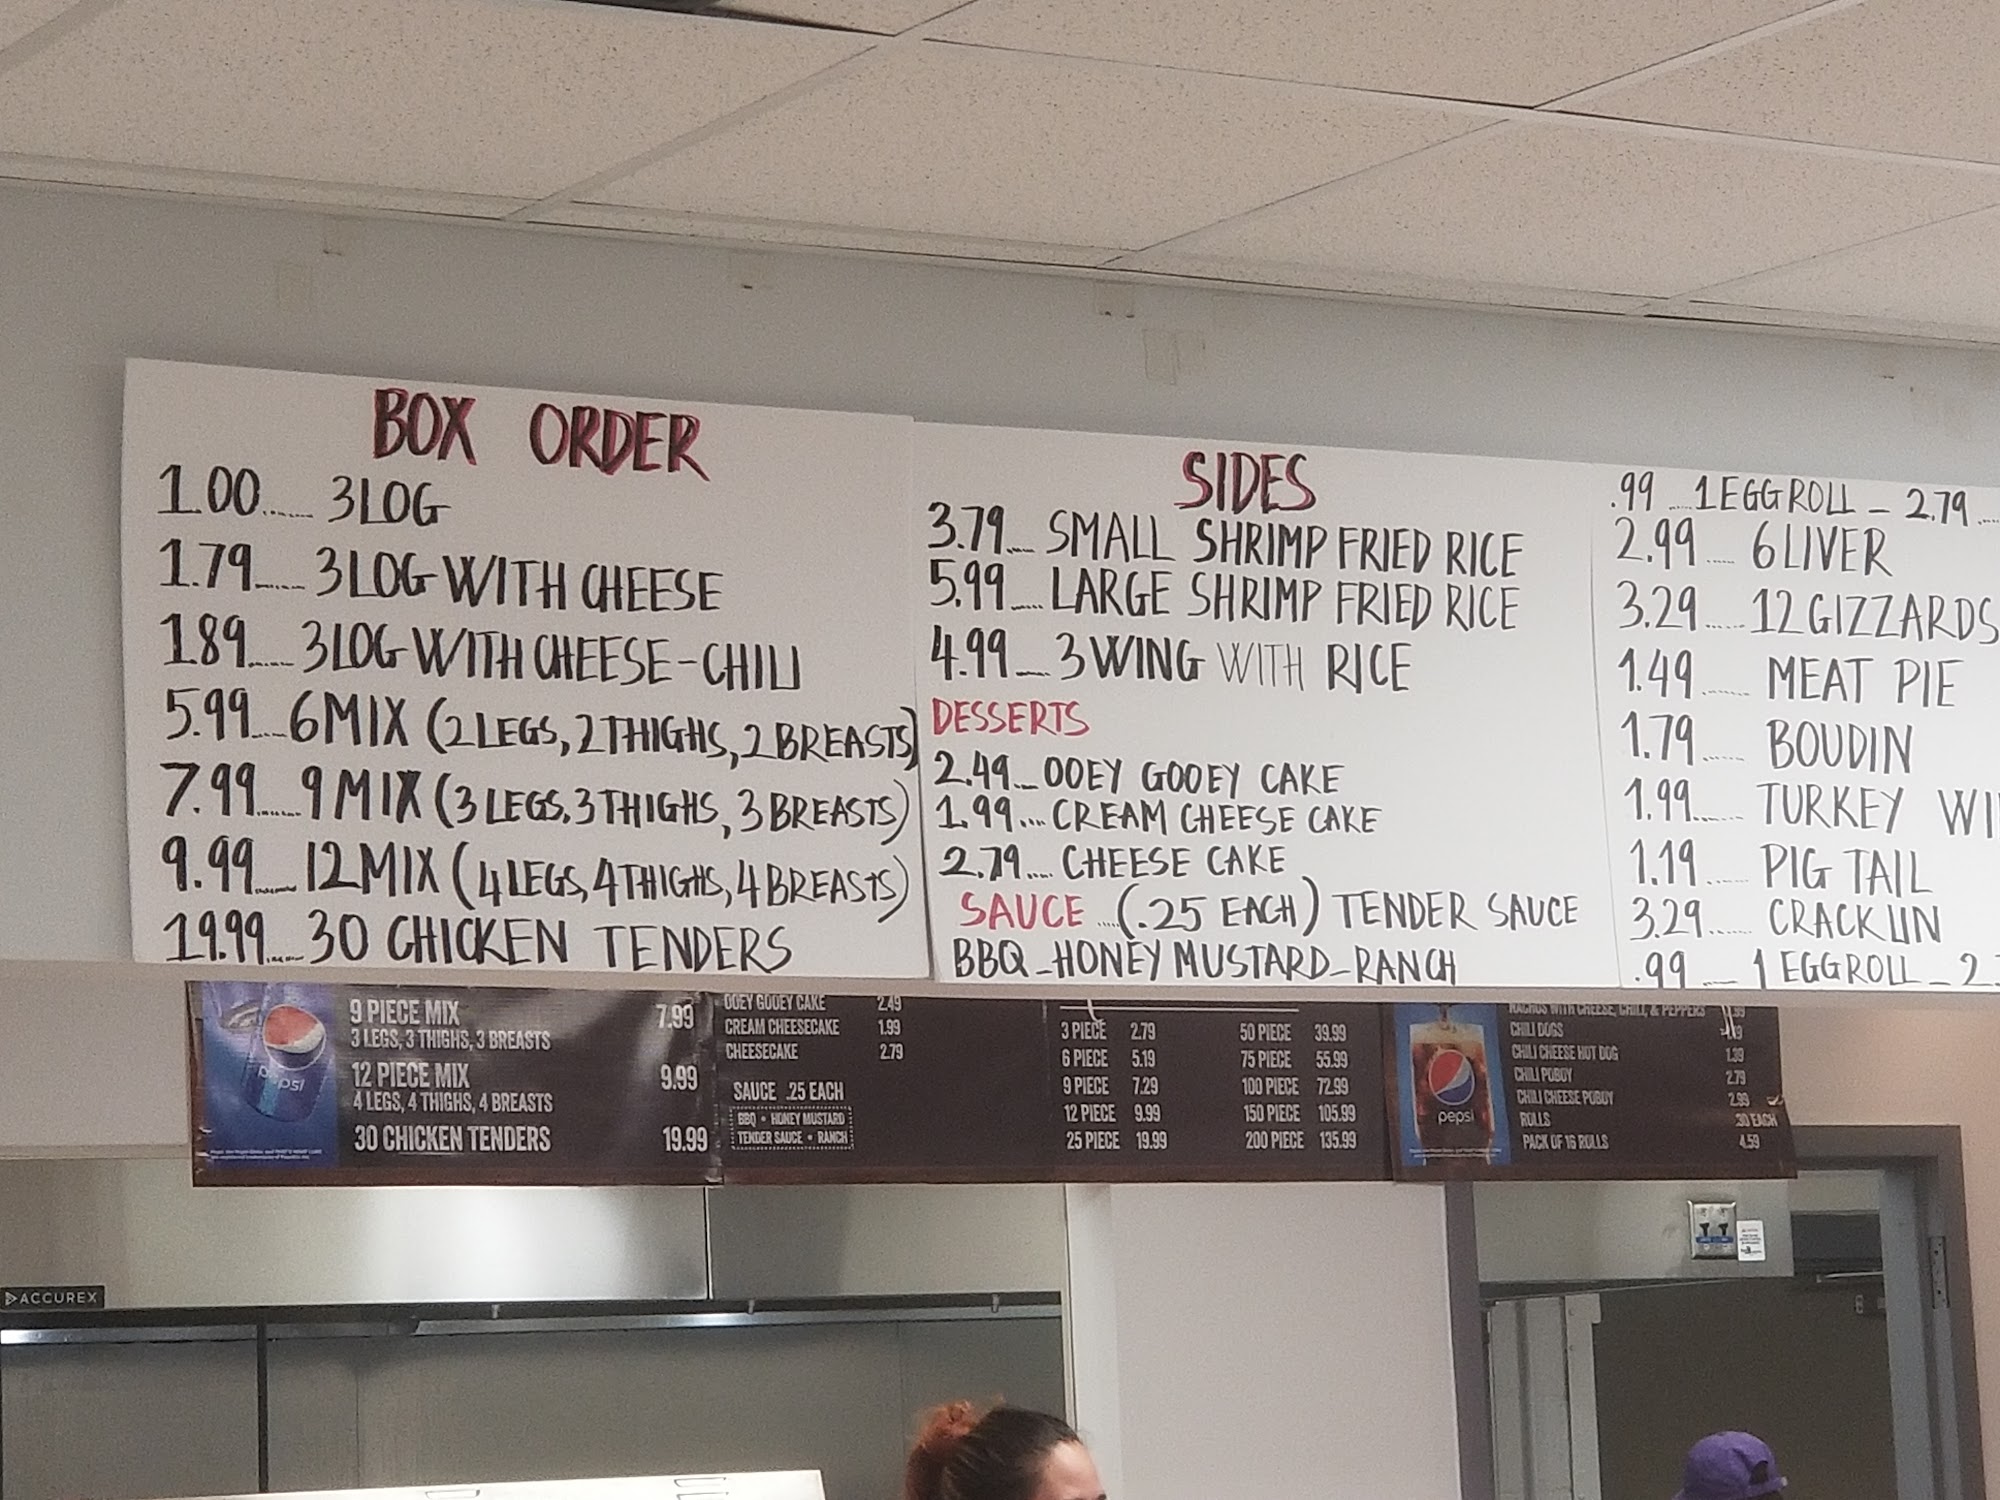 BOX ORDER
1.00...... 3 LOG
1.79....... 3 LOG WITH CHEESE
1.89...... 3 LOG WITH CHEESE-CHILI
5.99.... 6 MIX (2 LEGS, 2 THIGHS, 2 BREASTS)
7.99..... 9 MIX (3 LEGS, 3 THIGHS, 3 BREASTS)
9.99..... 12 MIX (4 LEGS, 4 THIGHS, 4 BREASTS)
19.99..... 30 CHICKEN TENDERS
SIDES
3.79.... SMALL SHRIMP FRIED RICE
5.99..... LARGE SHRIMP FRIED RICE
4.99.... 3 WING WITH RICE
DESSERTS
2.49... OOEY GOOEY CAKE
1.99.... CREAM CHEESE CAKE
2.79.... CHEESE CAKE
SAUCE ....(.25 EACH) TENDER SAUCE
BBQ - HONEY MUSTARD - RANCH
.99 .... 1 EGG ROLL - 2.79 ....
2.99 ..... 6 LIVER
3.29...... 12 GIZZARDS
1.49....... MEAT PIE
1.79...... BOUDIN
1.99...... TURKEY
1.19 ...... PIG TAIL
3.29....... CRACKLIN
.99 .... 1 EGG ROLL -
9 PIECE MIX 7.99
3 LEGS, 3 THIGHS, 3 BREASTS
12 PIECE MIX 9.99
4 LEGS, 4 THIGHS, 4 BREASTS
30 CHICKEN TENDERS 19.99
pepsi
OOEY GOOEY CAKE 2.49
CREAM CHEESECAKE 1.99
CHEESECAKE 2.79
SAUCE .25 EACH
BBQ • HONEY MUSTARD
TENDER SAUCE • RANCH
3 PIECE 2.79 50 PIECE 39.99
6 PIECE 5.19 75 PIECE 55.99
9 PIECE 7.29 100 PIECE 72.99
12 PIECE 9.99 150 PIECE 105.99
25 PIECE 19.99 200 PIECE 135.99
pepsi
NACHOS WITH CHEESE, CHILI, & PEPPERS
CHILI DOGS
CHILI CHEESE HOT DOG 1.39
CHILI POBOY 2.79
CHILI CHEESE POBOY 2.99
ROLLS .30 EACH
PACK OF 16 ROLLS 4.59
ACCUREX